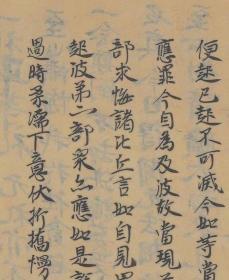 便起已起不可滅今如等當
應罪今自為及彼故當現
部求悔諸比丘言如自見
起彼第二部眾亦應如是
過時柔濡下意伏折憍慢